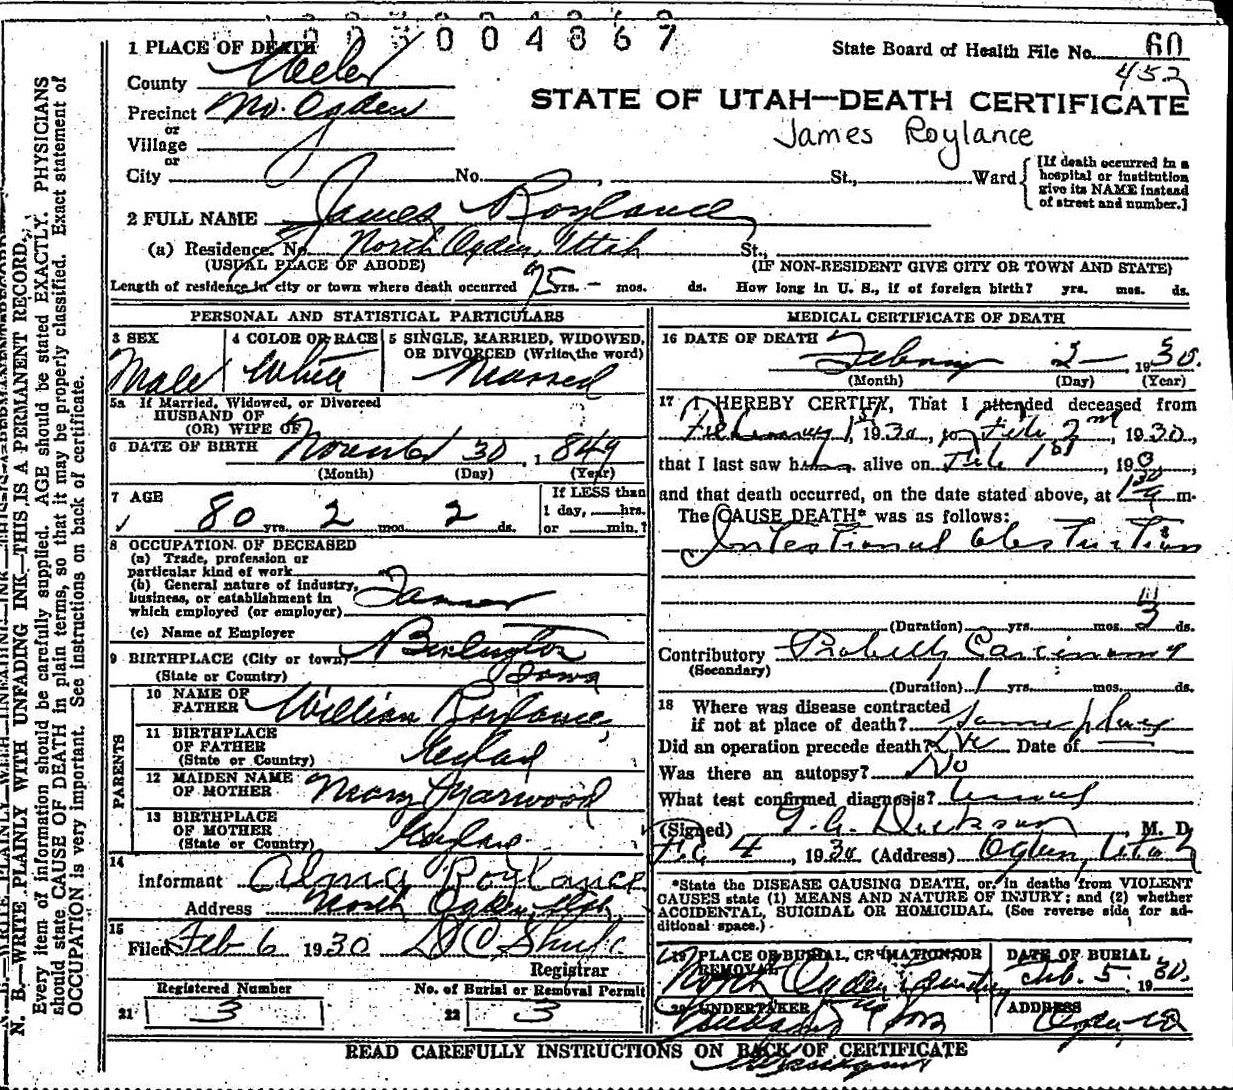 3004867
1 PLACE OF DEATH
State Board of Health File No. 60
452
County Weber
STATE OF UTAH—DEATH CERTIFICATE
Precinct No. Ogden
James Roylance
or
Village
or
City No. St., Ward
[If death occurred in a
hospital or institution
give its NAME instead
of street and number.]
2 FULL NAME James Roylance
(a) Residence. No. North Ogden, Utah St.,
(USUAL PLACE OF ABODE) (IF NON-RESIDENT GIVE CITY OR TOWN AND STATE)
Length of residence in city or town where death occurred 75 yrs. - mos. ds. How long in U. S., if of foreign birth? yrs. mos. ds.
PERSONAL AND STATISTICAL PARTICULARS
3 SEX
Male
4 COLOR OR RACE
White
5 SINGLE, MARRIED, WIDOWED,
OR DIVORCED (Write the word)
Married
5a If Married, Widowed, or Divorced
HUSBAND OF
(OR) WIFE OF
6 DATE OF BIRTH November 30, 1849
(Month) (Day) (Year)
7 AGE
80 yrs. 2 mos. 2 ds.
If LESS than
1 day, hrs.
or min.?
8 OCCUPATION OF DECEASED
(a) Trade, profession or
particular kind of work
(b) General nature of industry,
business, or establishment in
which employed (or employer) Farmer
(c) Name of Employer
9 BIRTHPLACE (City or town) Burlington
(State or Country) Iowa
PARENTS
10 NAME OF
FATHER William Roylance
11 BIRTHPLACE
OF FATHER
(State or Country)
12 MAIDEN NAME
OF MOTHER Mary Yarwood
13 BIRTHPLACE
OF MOTHER
(State or Country)
14
Informant Alma Roylance
Address North Ogden, Utah
15
Filed Feb 6 1930
Registrar
Registered Number
21 3
No. of Burial or Removal Permit
22 3
MEDICAL CERTIFICATE OF DEATH
16 DATE OF DEATH
February 2 1930.
(Month) (Day) (Year)
17 I HEREBY CERTIFY, That I attended deceased from
February 1st, 1930, to Feb 2nd, 1930,
that I last saw him alive on Feb 1st, 19
and that death occurred, on the date stated above, at m.
The CAUSE DEATH* was as follows:
Intestional Obstruction
(Duration) yrs. mos. 3 ds.
Contributory Probably Carcinoma
(Secondary)
(Duration) 1 yrs. mos. ds.
18 Where was disease contracted
if not at place of death? Same place
Did an operation precede death? No Date of
Was there an autopsy? No
What test confirmed diagnosis?
(Signed) , M. D.
4, 1930 (Address) Ogden, Utah
*State the DISEASE CAUSING DEATH, or, in deaths from VIOLENT
CAUSES state (1) MEANS AND NATURE OF INJURY; and (2) whether
ACCIDENTAL, SUICIDAL OR HOMICIDAL. (See reverse side for ad-
ditional space.)
19 PLACE OF BURIAL, CREMATION, OR
REMOVAL
North Ogden
DATE OF BURIAL
Feb. 5 1930.
20 UNDERTAKER
ADDRESS
READ CAREFULLY INSTRUCTIONS ON BACK OF CERTIFICATE
N. B.—WRITE PLAINLY WITH UNFADING INK—THIS IS A PERMANENT RECORD.
Every item of information should be carefully supplied. AGE should be stated EXACTLY. PHYSICIANS
should state CAUSE OF DEATH in plain terms, so that it may be properly classified. Exact statement of
OCCUPATION is very important. See instructions on back of certificate.